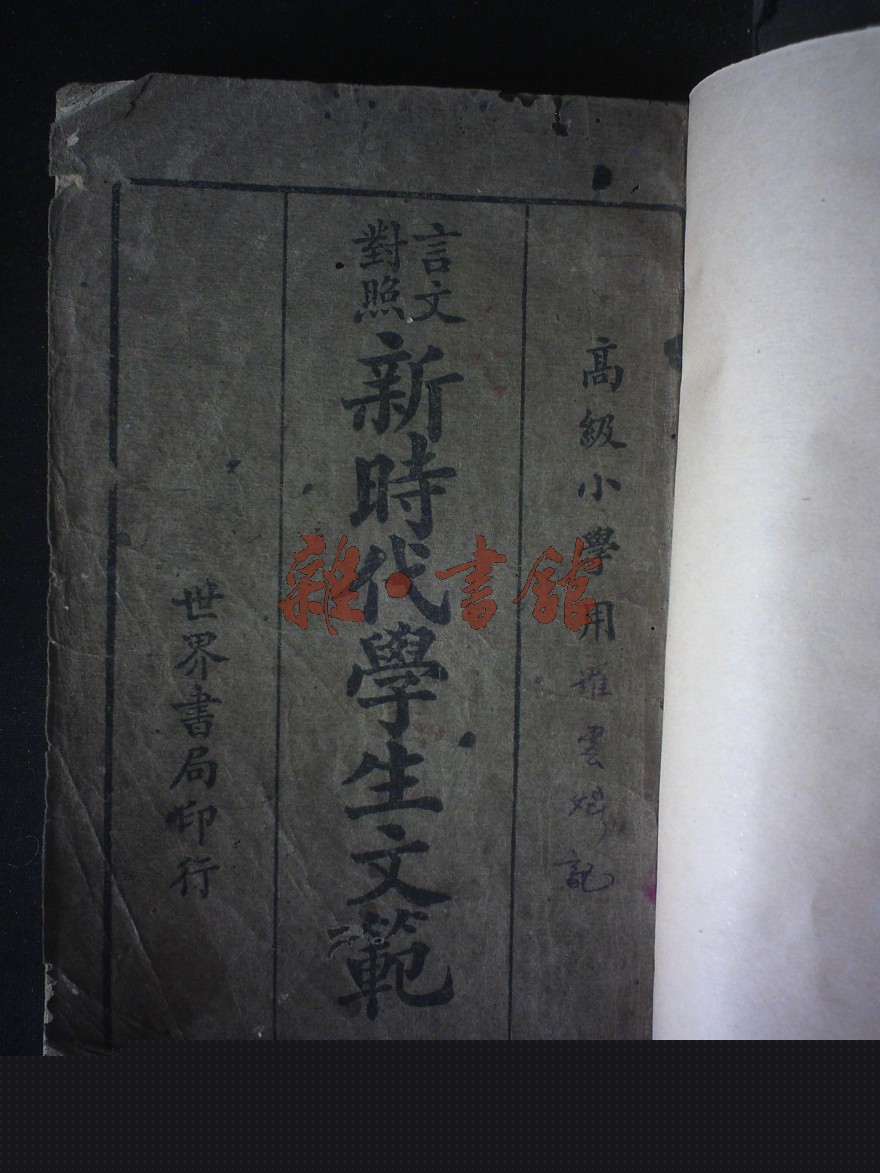 高級小學用
言文
對照
新時代學生文範
世界書局印行
雜·書館